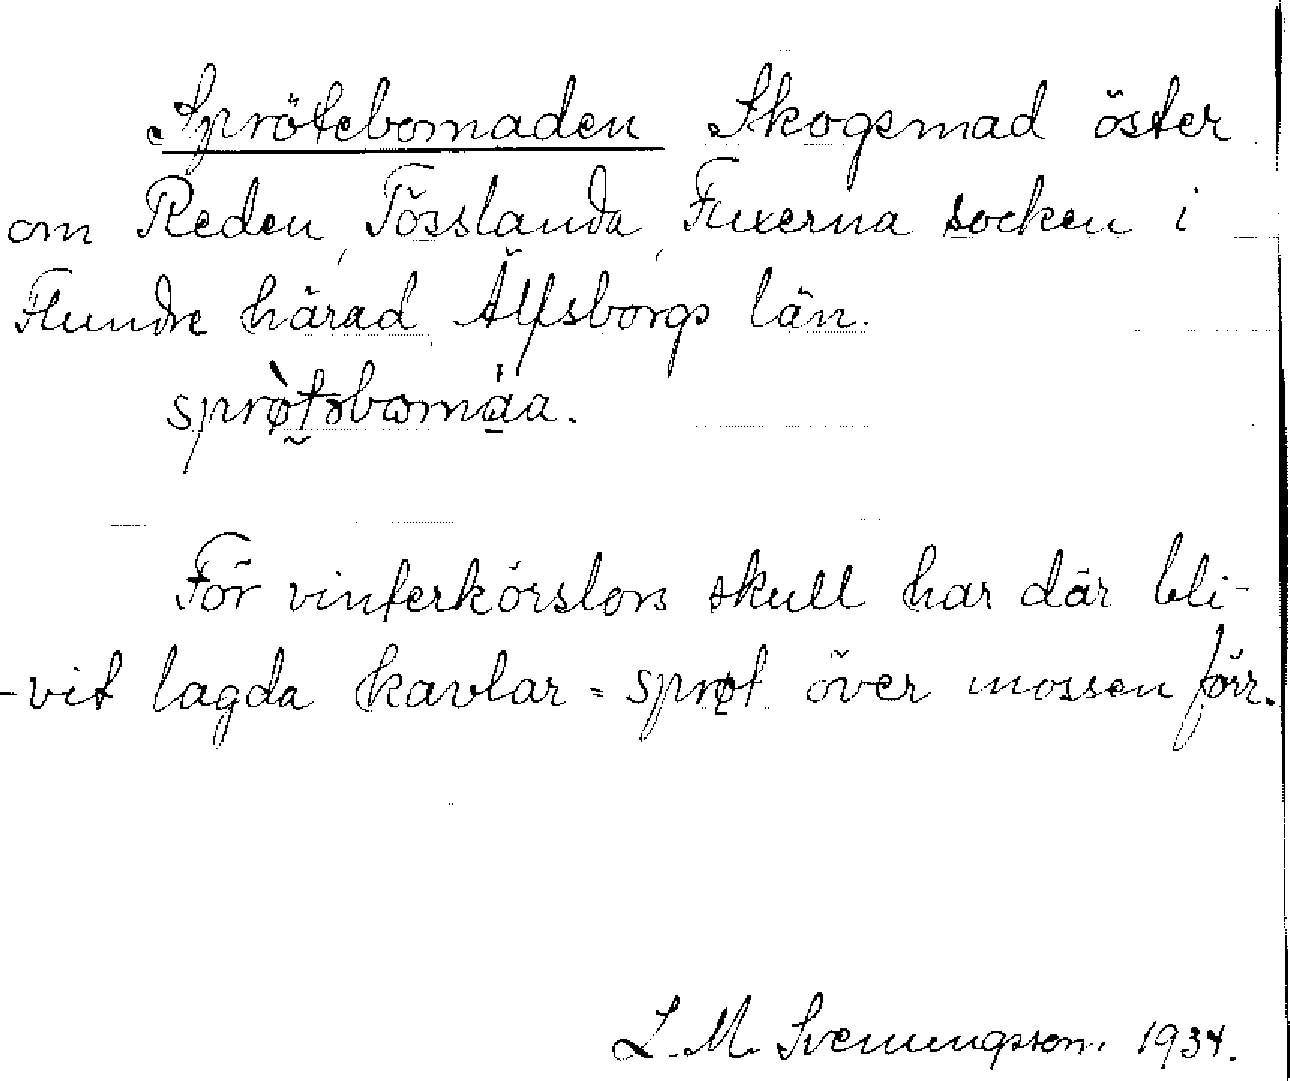 Sprötebomaden Skogsmad öster
om Reden, Tösslanda, Fuxerna socken i
Flundre härad Älfsborgs län.
För vinterkörslors skull har där bli-
-vit lagda kavlar = sprøt över mossen förr.
L. M. Svenungsson. 1934.